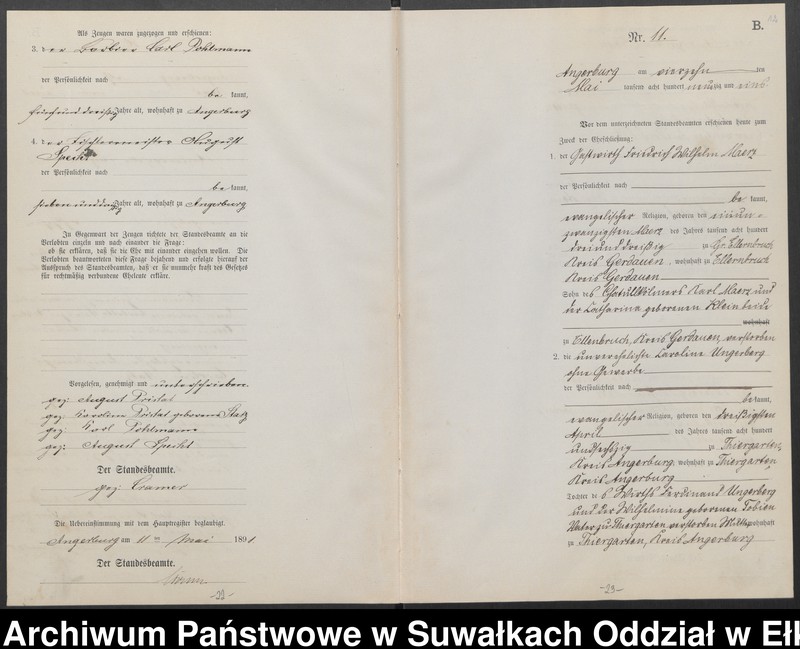 Als Zeugen waren zugezogen und erschienen:
3. der Barbier Carl Pohlmann
der Persönlichkeit nach
be kannt,
fünfunddreißig Jahre alt, wohnhaft zu Angerburg
4. der Tischlermeister August
Specht
der Persönlichkeit nach
be kannt,
Jahre alt, wohnhaft zu Angerburg
In Gegenwart der Zeugen richtete der Standesbeamte an die
Verlobten einzeln und nach einander die Frage:
ob sie erklären, daß sie die Ehe mit einander eingehen wollen. Die
Verlobten beantworteten diese Frage bejahend und erfolgte hierauf der
Ausspruch des Standesbeamten, daß er sie nunmehr kraft des Gesetzes
für rechtmäßig verbundene Eheleute erkläre.
Vorgelesen, genehmigt und unterschrieben
gez: August Pristat
gez: Karoline Pristat geborene
gez: Karl Pohlmann
gez: August Specht
Der Standesbeamte.
gez Cramer
Die Uebereinstimmung mit dem Hauptregister beglaubigt.
Angerburg am 11 ten Mai 1891
Der Standesbeamte.
-22-
B.
Nr. 11.
Angerburg am vierzehn ten
Mai tausend acht hundert neunzig und eins
Vor dem unterzeichneten Standesbeamten erschienen heute zum
Zweck der Eheschließung:
1. der Gastwirth Friedrich Wilhelm Maerz
der Persönlichkeit nach
be kannt,
evangelischer Religion, geboren den einund-
zwanzigsten Maerz des Jahres tausend acht hundert
dreiunddreißig zu Gr. Ellernbruch
Kreis Gerdauen, wohnhaft zu Ellernbruch
Kreis Gerdauen
Sohn des Chatullkölmers Karl Maerz und
der Catharina geborenen Klein beide
wohnhaft
zu Ellenbruch, Kreis Gerdauen, verstorben
2. die unverehelichte Caroline Ungerberg
ohne Gewerbe
der Persönlichkeit nach
be kannt,
evangelischer Religion, geboren den dreißigsten
April des Jahres tausend acht hundert
undsechzig zu Thiergarten,
Kreis Angerburg, wohnhaft zu Thiergarten,
Kreis Angerburg
Tochter des Wirths Ferdinand Ungerberg
und der Wilhelmine geborenen Tobien
Vater zu Thiergarten verstorben Mutter wohnhaft
zu Thiergarten, Kreis Angerburg
-23-
Archiwum Państwowe w Suwałkach Oddział w Ełk